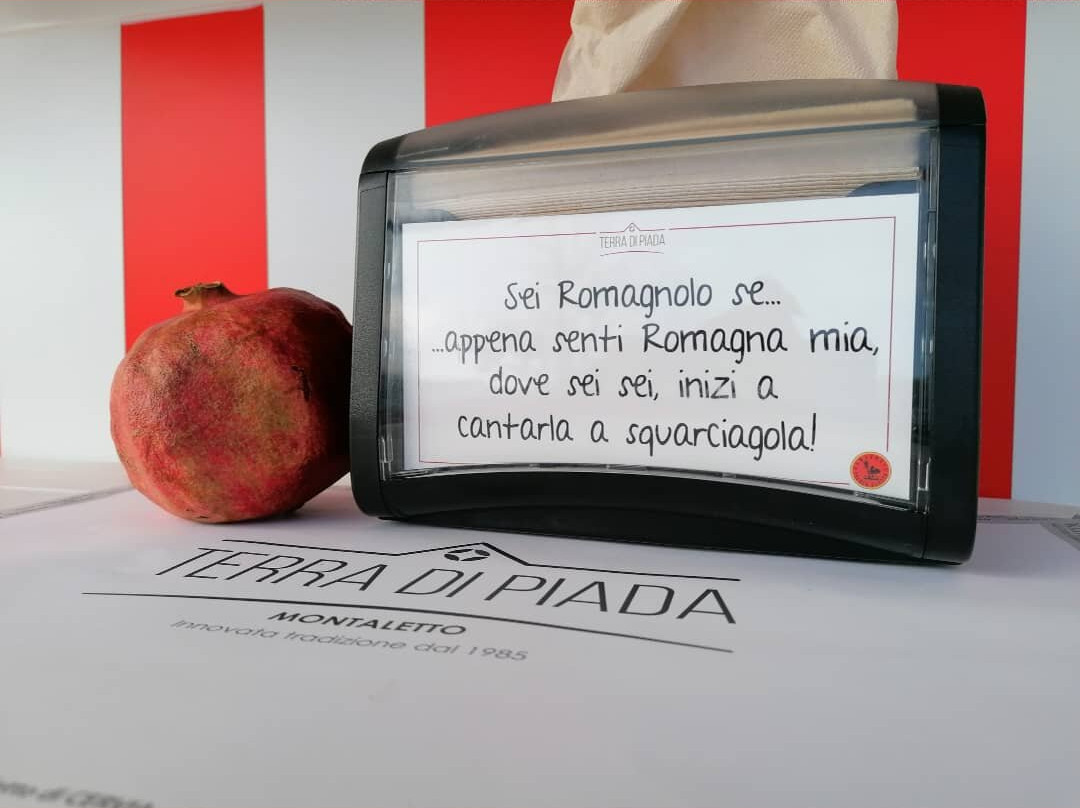 TERRA DI PIADA
Sei Romagnolo se...
...appena senti Romagna mia,
dove sei sei, inizi a
cantarla a squarciagola!
TERRA DI PIADA
MONTALETTO
Innovata tradizione dal 1985
di CERVIA